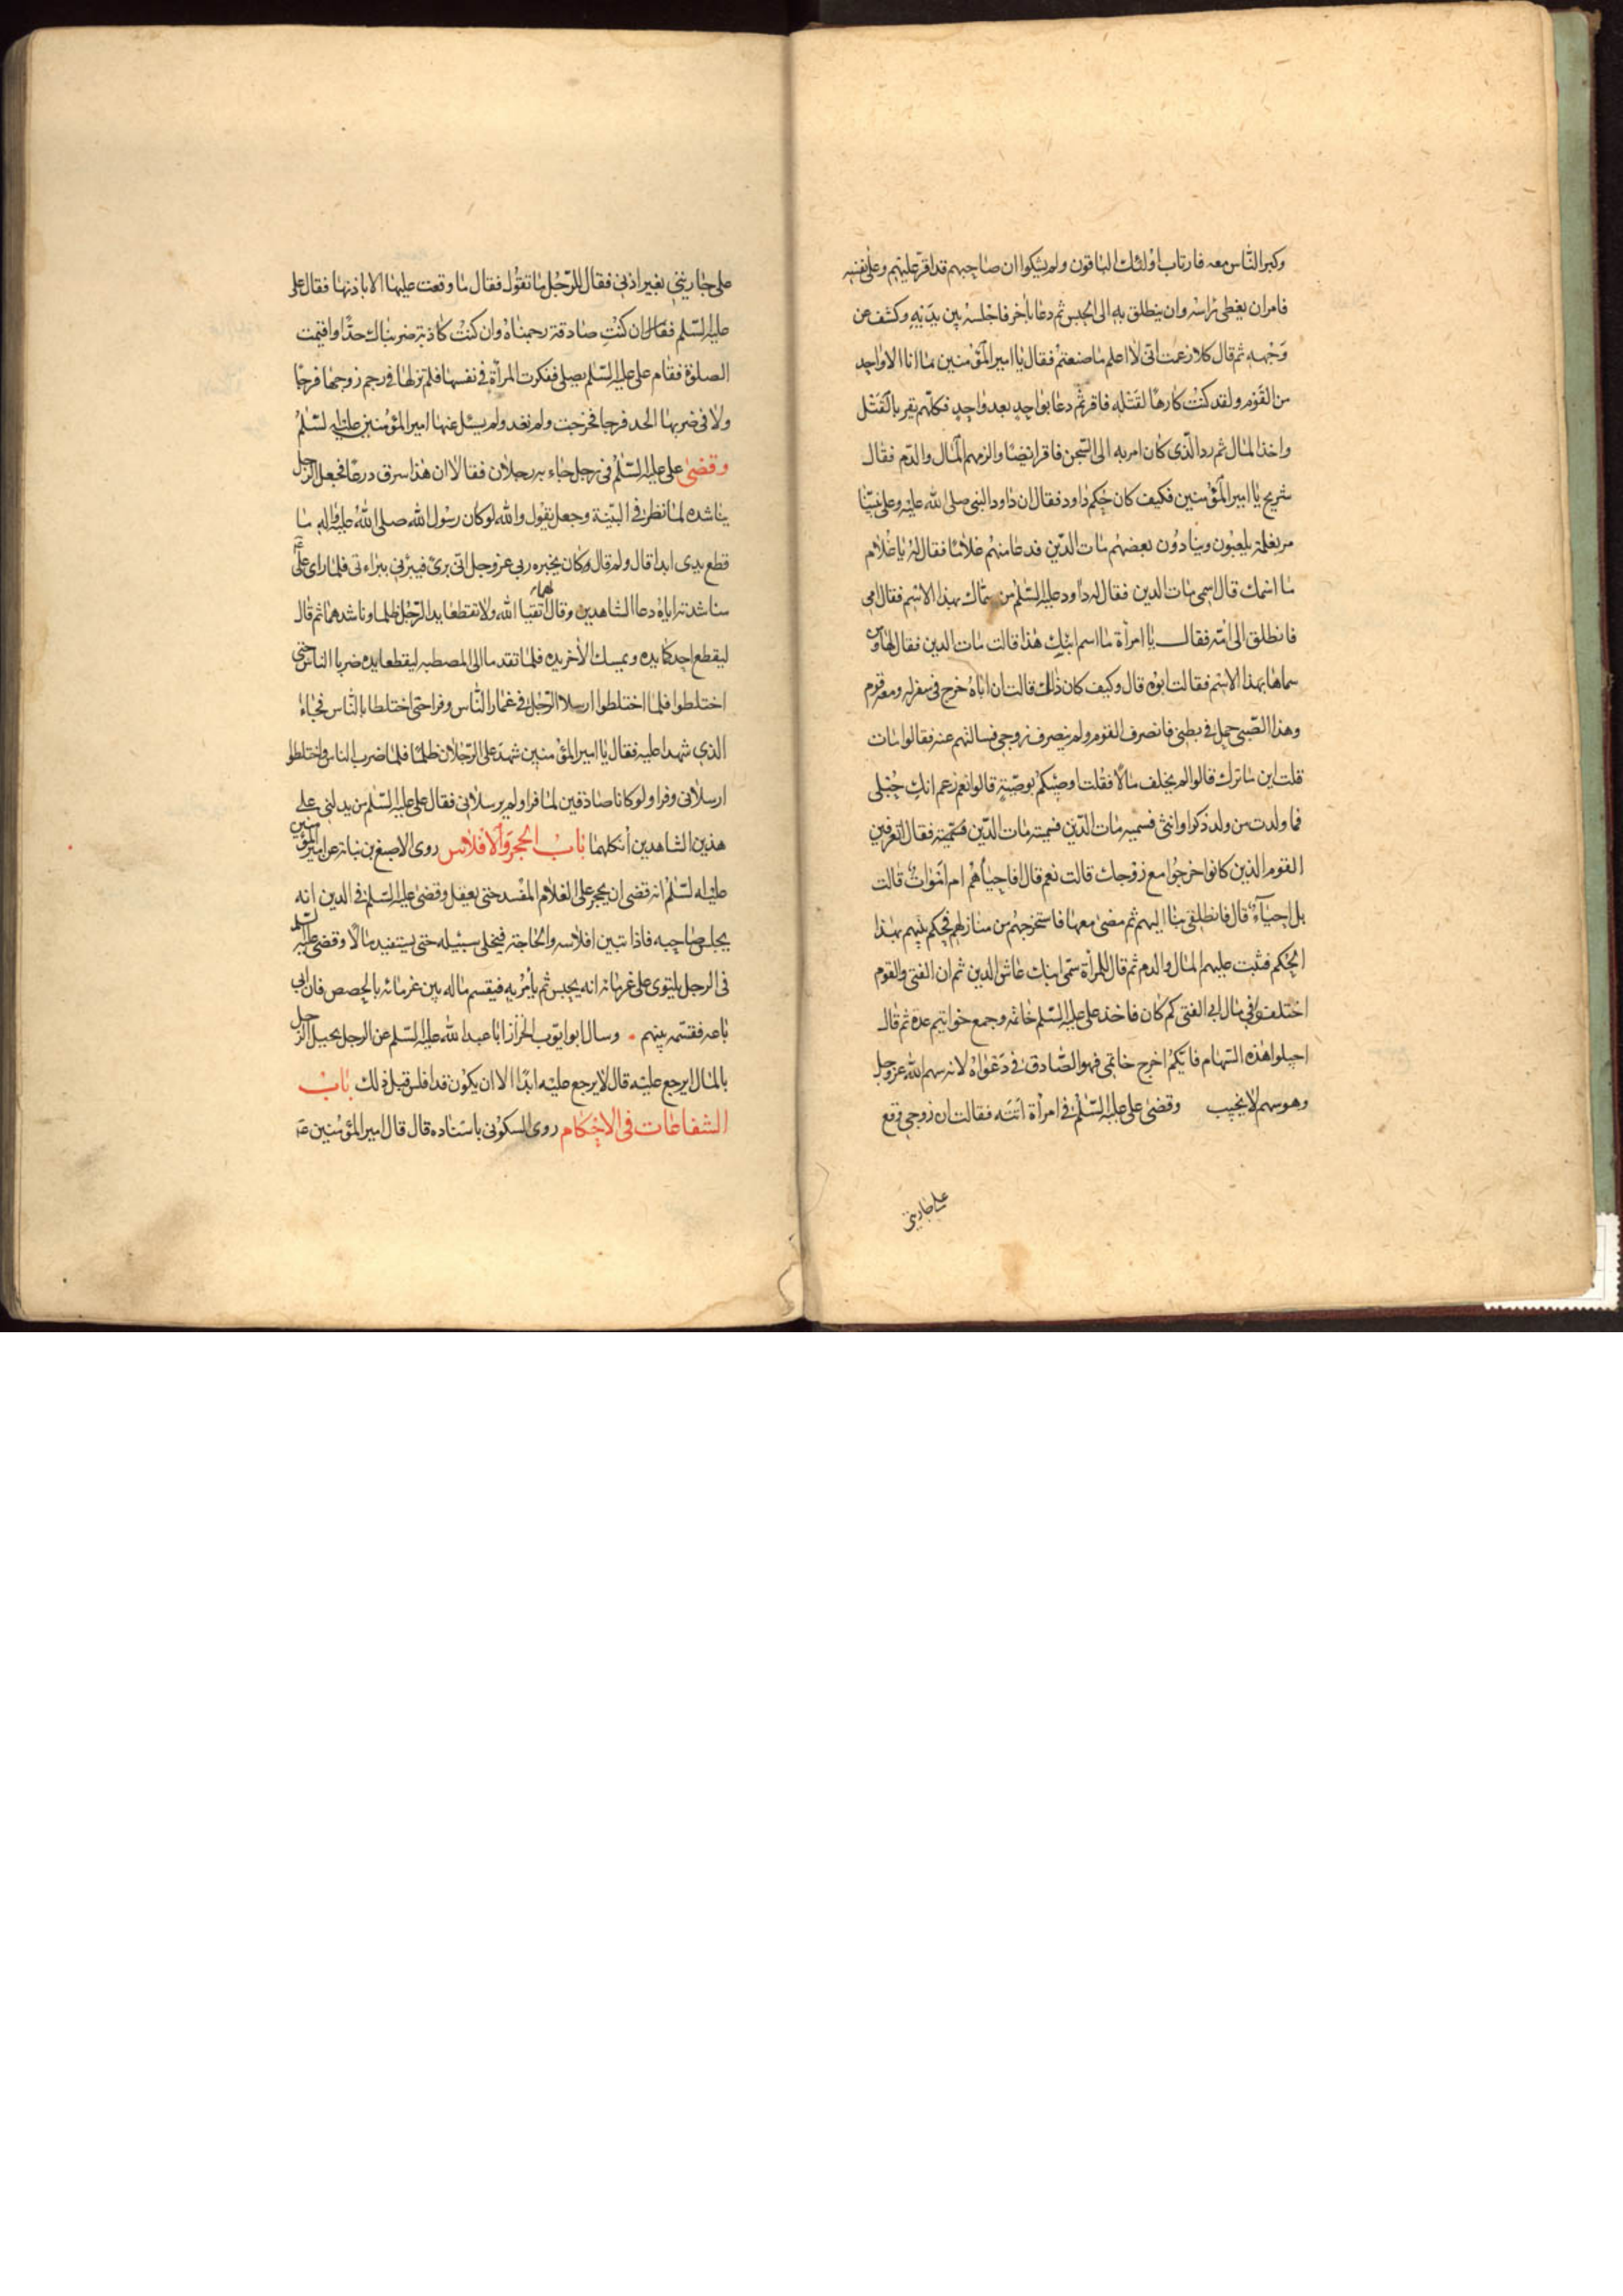 وكبر النّاس معه فارتاب اولئك الباقون ولم يشكوا ان صاحبهم قد اقرّ عليهم وعلى نفسه
فامر ان يغطى راسه وان ينطلق به الى الحبس ثم دعا باٰخر فاجلسه بين يديه وكشف عن
وجهه ثم قال كلا زعمت انى لا اعلم ما صنعتم فقال يا امير المؤمنين ما انا الا واحد
من القوم ولقد كنت كارهًا لقتله فاقر ثم دعا بواحد بعد واحد فكلهم يقر بالقتل
واخذ المال ثم ردّ الّذى كان امر به الى السجن فاقر ايضًا والزمهم المال والدّم فقال
شريح يا امير المؤمنين فكيف كان حكم داود فقال ان داود النبى صلى الله عليه وعلى نبيّنا
مر بغلمة يلعبون وينادون بعضهم مات الدّين فدعا منهم غلامًا فقال له يا غلام
ما اسمك قال اسمى مات الدين فقال له داود عليه السّلم من سمّاك بهذا الاسم فقال امى
فانطلق الى امّه فقال يا امراة ما اسم ابنك هذا قالت مات الدين فقال لها ومن
سماها بهذا الاسم فقالت ابوه قال وكيف كان ذلك قالت ان اباه خرج فى سفر له ومعه قوم
وهذا الصّبى حمل فى بطنى فانصرف القوم ولم ينصرف زوجى فسالتهم عنه فقالوا مات
قلت اين ما ترك قالوا لم يخلف مالًا فقلت اوصيكم بوصيّة قالوا نعم زعم انك حبلى
فما ولدت من ولد ذكر او انثى فسميه مات الدّين فسميته مات الدّين فقال اتعرفين
القوم الذين كانوا خرجوا مع زوجك قالت نعم قال افاحياء هم ام اموات قالت
بل احياء قال فانطلقى بنا اليهم ثم مضى معها فاستخرجهم من منازلهم فحكم بينهم بهذا
الحكم فثبت عليهم المال والدم ثم قال للمراة سمّى ابنك عاش الدين ثم ان الفتى والقوم
اختلفوا فى مال ابى الفتى كم كان فاخذ على عليه السّلم خاتمه وجمع خواتيم عدة ثم قال
اجيلوا هذه السّهام فايّكم اخرج خاتمى فهو الصّادق فى دعواه لانه سهم الله عز وجل
وهو سهم لا يخيب وقضى على عليه السّلم فى امراة اتته فقالت ان زوجى وقع
على جاريتى
على جاريتى بغير اذنى فقال للرّجل ما تقول فقال ما وقعت عليها الا باذنها فقال على
عليه السّلم فقال ان كنت صادقة رجمناه وان كنت كاذبة ضربناك حدًّا واقيمت
الصلوة فقام على عليه السّلم يصلى ففكرت المراة فى نفسها فلم تر لها فى رجم زوجها فرجًا
ولا فى ضربها الحد فرجا فخرجت ولم تعد ولم يسئل عنها امير المؤمنين عليه السّلم
وقضى على عليه السّلم فى رجل جاء به رجلان فقالا ان هذا سرق درعًا فجعل الرّجل
يناشده لما نظر فى البيّنة وجعل يقول والله لو كان رسول الله صلى الله عليه واٰله ما
قطع يدى ابدا قال ولم قال كان يخبره ربى عز وجل انى برئ فيبرئنى ببراءتى فلما راى على
مناشدته اياه دعا الشاهدين وقال لهما اتقيا الله ولا تقطعا يد الرّجل ظلما وناشدهما ثم قال
ليقطع احدكما يده ويمسك الاخر يده فلما تقدما الى المصطبه ليقطعا يده ضربا الناس حتى
اختلطوا فلما اختلطوا ارسلا الرّجل فى غمار النّاس وفرا حتى اختلطا بالنّاس فجاء
الذى شهدا عليه فقال يا امير المؤمنين شهد على الرّجلان ظلمًا فلما ضربا الناس واختلطوا
ارسلانى وفرا ولو كانا صادقين لما فرا ولم يرسلانى فقال على عليه السّلم من يدلنى على
هذين الشاهدين انكلهما باب الحجر والافلاس روى الاصبغ بن نباته عن امير المؤمنين
عليه السّلم انه قضى ان يحجر على الغلام المفسد حتى يعقل وقضى عليه السّلم فى الدين انه
يحبس صاحبه فاذا تبين افلاسه والحاجة فيخلى سبيله حتى يستفيد مالًا وقضى عليه السّلم
فى الرجل يلتوى على غرمائه انه يحبس ثم يأمر به فيقسم ماله بين غرمائه بالحصص فان ابى
باعه فقسّمه بينهم وسال ابو ايّوب الخزّاز ابا عبد الله عليه السّلم عن الرجل يحيل الرّجل
بالمال ايرجع عليه قال لا يرجع عليه ابدًا الا ان يكون قد افلس قبل ذلك باب
الشفاعات فى الاحكام روى السكونى باسناده قال قال امير المؤمنين عۤ